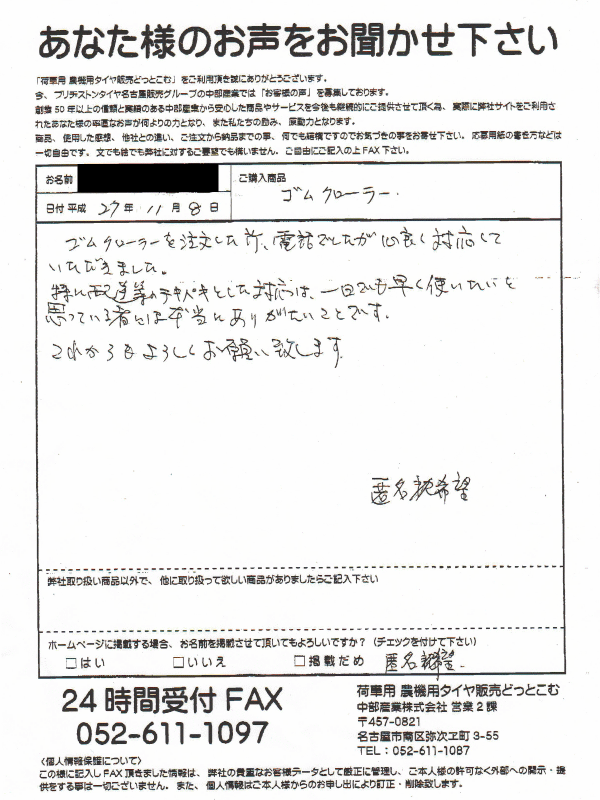 あなた様のお声をお聞かせ下さい
「荷車用 農機用タイヤ販売どっとこむ」をご利用頂き誠にありがとうございます。
今、ブリヂストンタイヤ名古屋販売グループの中部産業では「お客様の声」を募集しております。
創業50年以上の信頼と実績のある中部産業から安心した商品やサービスを今後も継続的にご提供させて頂く為、実際に弊社サイトをご利用さ
れたあなた様の率直なお声が何よりの力となり、また私たちの励み、原動力となります。
商品、使用した感想、他社との違い、ご注文から納品までの事、何でも結構ですのでお気づきの事をお寄せ下さい。応募用紙の書き方などは
一切自由です。文でも絵でも弊社に対するご要望でも構いません。ご自由にご記入の上FAX下さい。
お名前
ご購入商品
ゴムクローラー.
日付 平成 27年 11月 8日
ゴムクローラーを注文した所、電話でしたが心良く対応して
いただきました。
特に配達等のテキパキとした対応は、一日でも早く使いたいと
思っている者には本当にありがたいことです.
これからもよろしくお願い致します.
匿名希望
弊社取り扱い商品以外で、他に取り扱って欲しい商品がありましたらご記入下さい
ホームページに掲載する場合、お名前を掲載させて頂いてもよろしいですか？（チェックを付けて下さい）
□はい □いいえ □掲載だめ 匿名希望.
24時間受付FAX
052-611-1097
荷車用 農機用タイヤ販売どっとこむ
中部産業株式会社 営業2課
〒457-0821
名古屋市南区弥次ヱ町3-55
TEL：052-611-1087
〈個人情報保護について〉
この様に記入しFAX頂きました情報は、弊社の貴重なお客様データとして厳正に管理し、ご本人様の許可なく外部への開示・提
供をする事は一切ございません。また、個人情報はご本人様からのお申し出により訂正・削除致します。